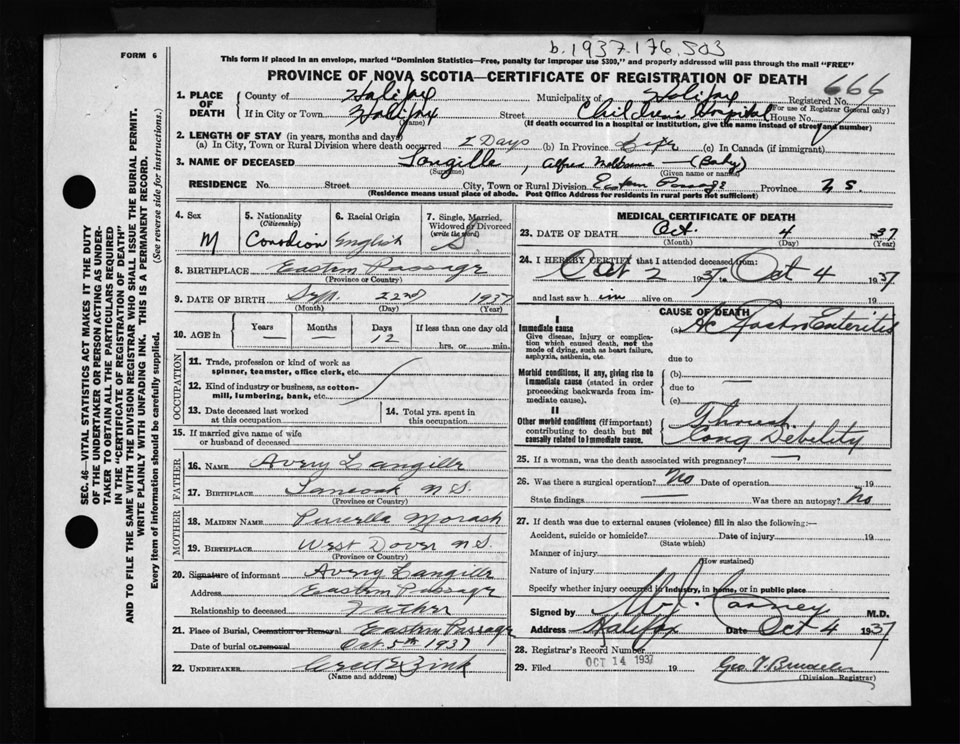 b.1937.176.503
FORM 6
This form if placed in an envelope, marked "Dominion Statistics—Free, penalty for improper use $300," and properly addressed will pass through the mail "FREE"
PROVINCE OF NOVA SCOTIA—CERTIFICATE OF REGISTRATION OF DEATH
666
1. PLACE OF DEATH
County of Halifax Municipality of Halifax Registered No.
(For use of Registrar General only)
If in City or Town Halifax Street Childrens Hospital House No.
(Name) (If death occurred in a hospital or institution, give the name instead of street and number)
2. LENGTH OF STAY (in years, months and days)
(a) In City, Town or Rural Division where death occurred 2 Days (b) In Province Life (c) In Canada (if immigrant)
3. NAME OF DECEASED Langille, Alfred Melbourne — (Baby)
(Surname) (Given name or names)
RESIDENCE No. Street City, Town or Rural Division Eastern Passage Province N S.
(Residence means usual place of abode. Post Office Address for residents in rural parts not sufficient)
4. Sex
M
5. Nationality
(Citizenship)
Canadian
6. Racial Origin
English
7. Single, Married, Widowed or Divorced
(write the word)
S
8. BIRTHPLACE Eastern Passage
(Province or Country)
9. DATE OF BIRTH Sept. 22nd 1937
(Month) (Day) (Year)
10. AGE in
Years Months Days If less than one day old
— — 12 hrs. or min.
OCCUPATION
11. Trade, profession or kind of work as
spinner, teamster, office clerk, etc.
12. Kind of industry or business, as cotton-
mill, lumbering, bank, etc.
13. Date deceased last worked
at this occupation
14. Total yrs. spent in
this occupation
15. If married give name of wife
or husband of deceased
FATHER
16. NAME Avery Langille
17. BIRTHPLACE N S.
(Province or Country)
MOTHER
18. MAIDEN NAME Morash
19. BIRTHPLACE West Dover N S.
(Province or Country)
20. Signature of informant Avery Langille
Address Eastern Passage
Relationship to deceased Father
21. Place of Burial, Cremation or Removal Eastern Passage
Date of burial or removal Oct 5th 1937
22. UNDERTAKER Zink
(Name and address)
MEDICAL CERTIFICATE OF DEATH
23. DATE OF DEATH Oct. 4 1937
(Month) (Day) (Year)
24. I HEREBY CERTIFY that I attended deceased from:
Oct 2 1937 to Oct 4 1937
and last saw h im alive on 19
CAUSE OF DEATH
I
Immediate cause
Give disease, injury or complication which caused death, not the mode of dying, such as heart failure, asphyxia, asthenia, etc.
(a) Ac Gastro Enteritis
due to
Morbid conditions, if any, giving rise to immediate cause (stated in order proceeding backwards from immediate cause).
(b) —
due to
(c)
II
Other morbid conditions (if important) contributing to death but not causally related to immediate cause.
Thrush
Cong Debility
25. If a woman, was the death associated with pregnancy? —
26. Was there a surgical operation? No Date of operation 19
State findings — Was there an autopsy? No
27. If death was due to external causes (violence) fill in also the following:—
Accident, suicide or homicide? Date of injury 19
(State which)
Manner of injury
(How sustained)
Nature of injury
Specify whether injury occurred in industry, in home, or in public place
Signed by Carney M.D.
Address Halifax Date Oct 4 1937
28. Registrar's Record Number
29. Filed OCT 14 1937 19
(Division Registrar)
SEC. 46—VITAL STATISTICS ACT MAKES IT THE DUTY
OF THE UNDERTAKER OR PERSON ACTING AS UNDER-
TAKER TO OBTAIN ALL THE PARTICULARS REQUIRED
IN THE "CERTIFICATE OF REGISTRATION OF DEATH"
AND TO FILE THE SAME WITH THE DIVISION REGISTRAR WHO SHALL ISSUE THE BURIAL PERMIT.
WRITE PLAINLY WITH UNFADING INK. THIS IS A PERMANENT RECORD.
Every item of information should be carefully supplied. (See reverse side for instructions.)